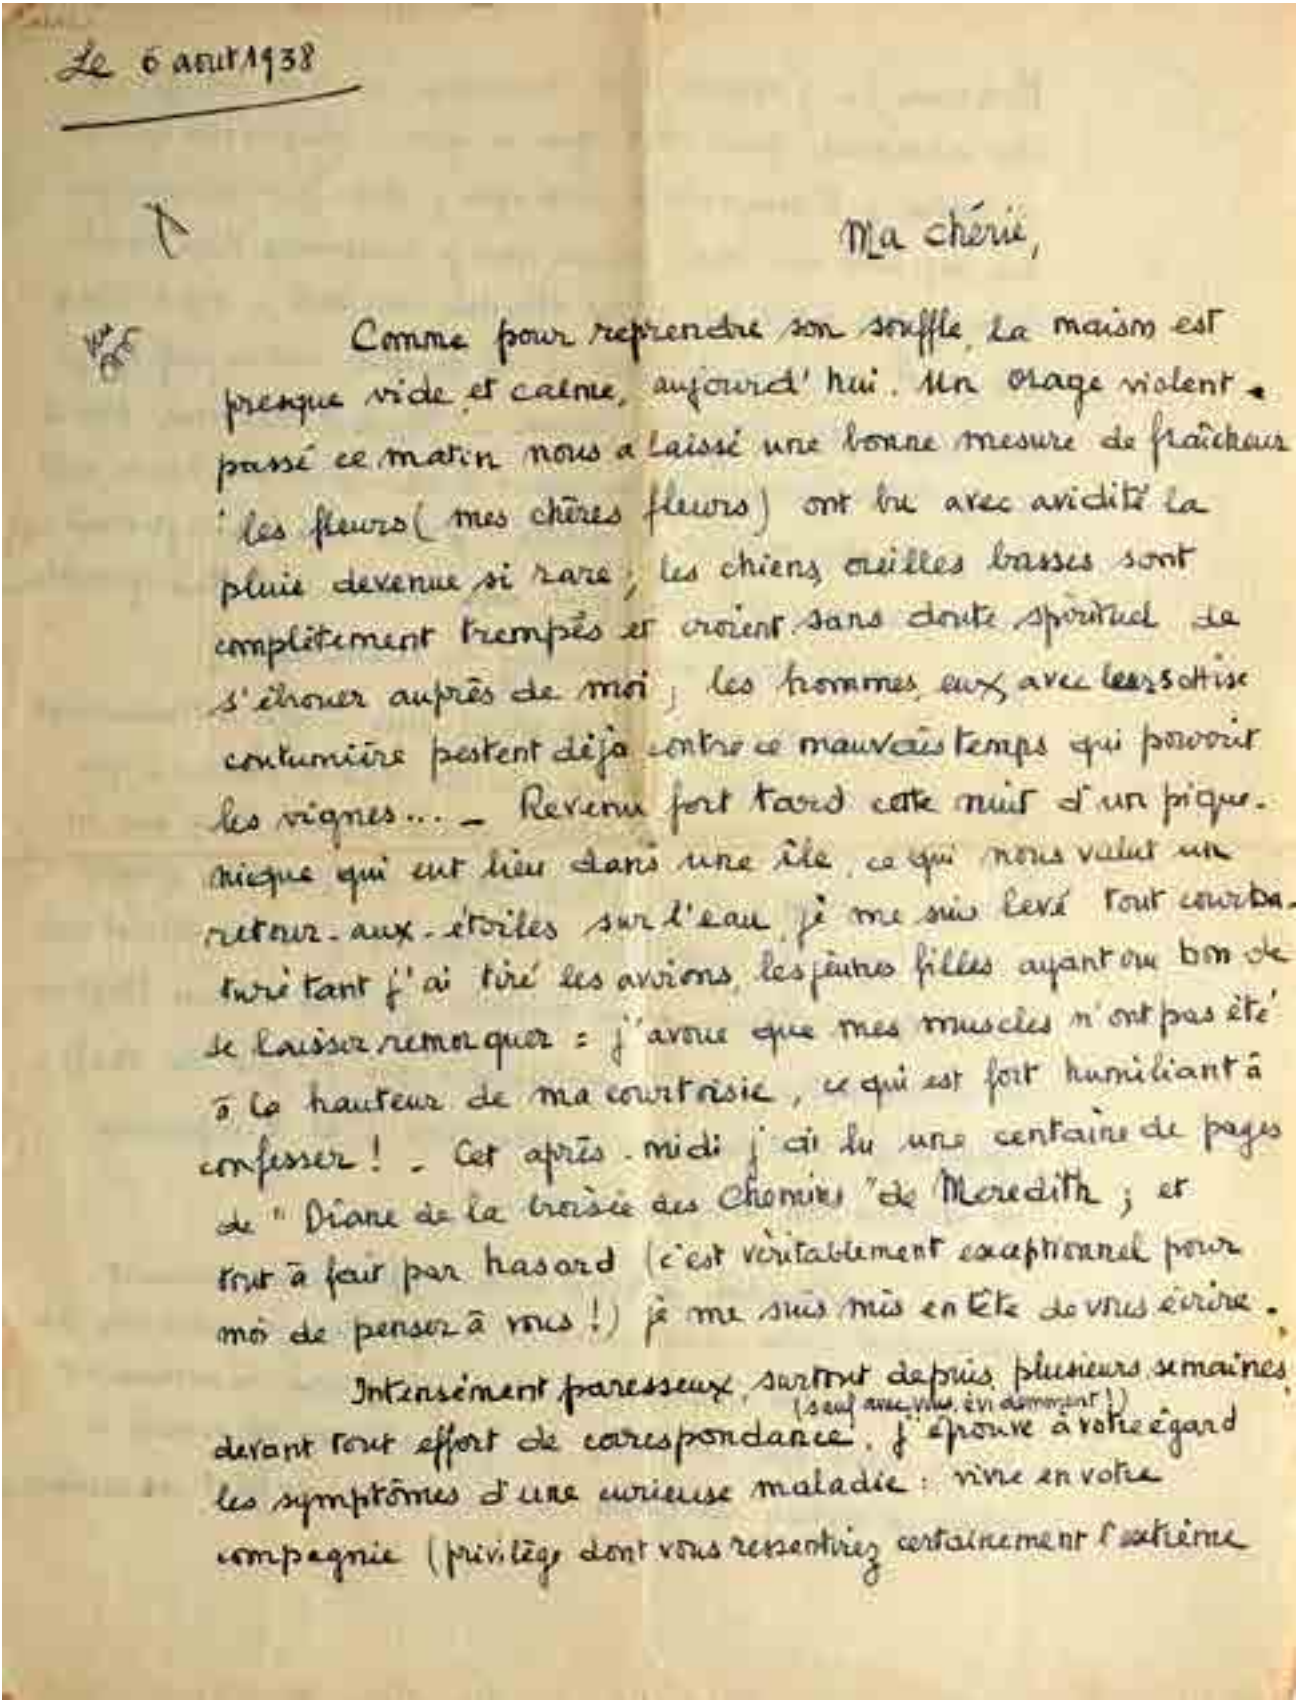 Le 6 août 1938
Ma chérie,
Comme pour reprendre son souffle, la maison est
presque vide, et calme, aujourd'hui. Un orage violent
passé ce matin nous a laissé une bonne mesure de fraîcheur
: les fleurs (mes chères fleurs) ont bu avec avidité la
pluie devenue si rare ; les chiens, oreilles basses sont
complètement trempés et croient sans doute spirituel de
s'ébrouer auprès de moi ; les hommes, eux, avec leur sottise
coutumière pestent déjà contre ce mauvais temps qui pourrit
les vignes... – Revenu fort tard cette nuit d'un pique-
nique qui eut lieu dans une île, ce qui nous valut un
retour-aux-étoiles sur l'eau, je me suis levé tout courba-
turé tant j'ai tiré les avirons, les jeunes filles ayant cru bon de
se laisser remorquer : j'avoue que mes muscles n'ont pas été
à la hauteur de ma courtoisie, ce qui est fort humiliant à
confesser ! - Cet après-midi j'ai lu une centaine de pages
de "Diane de la croisée des Chemins" de Meredith ; et
tout à fait par hasard (c'est véritablement exceptionnel pour
moi de penser à vous !) je me suis mis en tête de vous écrire.
Intensément paresseux, surtout depuis plusieurs semaines,
(sauf avec vous, évidemment !)
devant tout effort de correspondance, j'éprouve à votre égard
les symptômes d'une curieuse maladie : vivre en votre
compagnie (privilège dont vous ressentirez certainement l'extrême